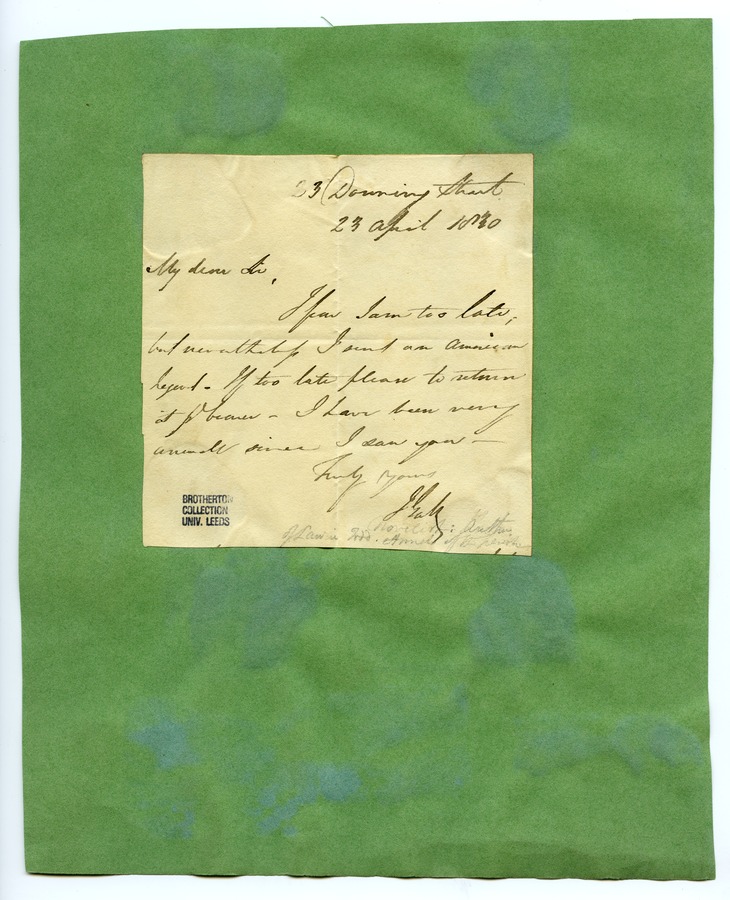 23 Downing Street
23 April 1830
My dear Sir,
I fear I am too late,
but nevertheless I send an American
legend - If too late please to return
it p bearer - I have been very
unwell since I saw you -
Truly yours
J Galt
Novelist: Author
of Lawrie Todd. Annals of the parish
BROTHERTON
COLLECTION
UNIV. LEEDS